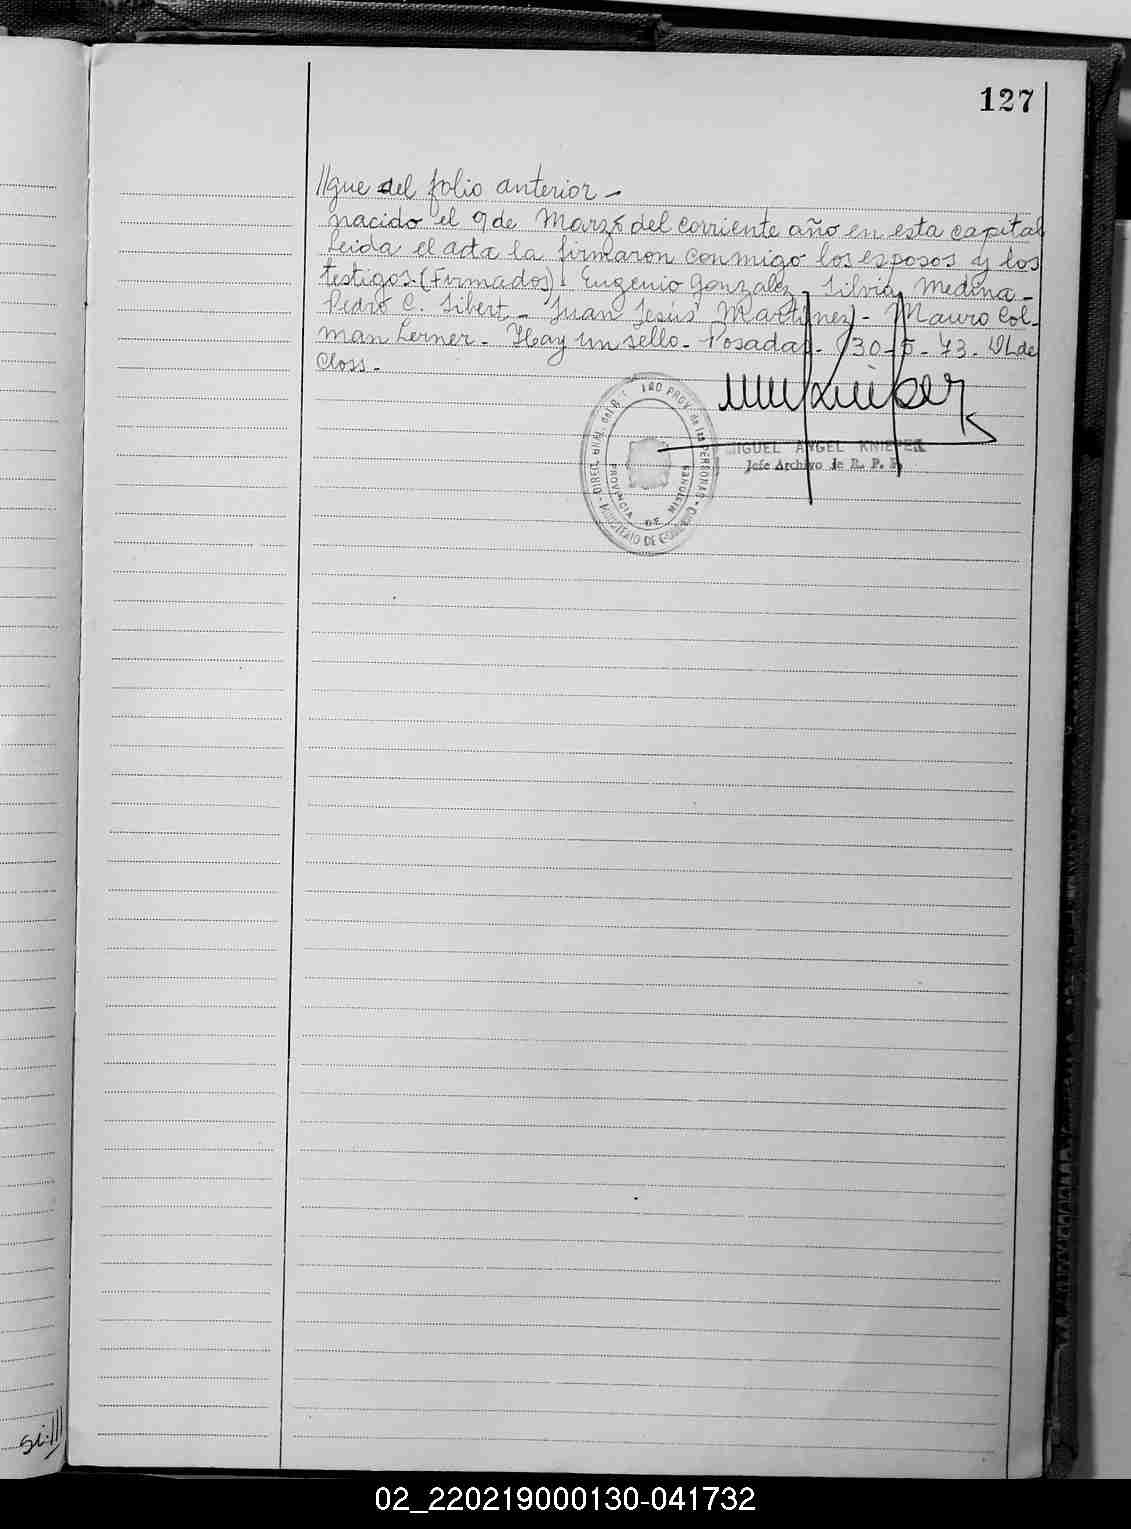 127
//gue del folio anterior -
nacido el 9 de Marzo del corriente año en esta capital
Leida el acta la firmaron conmigo los esposos y los
testigos. (Firmados) Eugenio Gonzalez - Silvia Medina -
Pedro C. Sibert - Juan Jesús Martinez - Mauro Col-
man Lerner - Hay un sello - Posadas - 30-5-73. OL de
Closs -
MIGUEL ANGEL KNIEPER
Jefe Archivo de R. P. P.
PROV. de las PERSONAS
MINISTERIO DE GOBIERNO
PROVINCIA DE MISIONES
si///
02_220219000130-041732